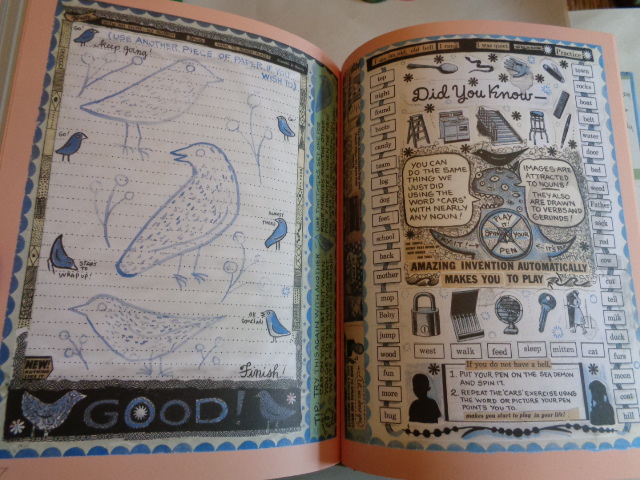 (USE ANOTHER PIECE OF PAPER IF YOU
WISH TO)
Go!
Keep going!
Go!
Go!
ALMOST
THERE!
START
TO
WRAP UP!
OK
CONCLUDE!
NEW!
Finish!
GOOD!
Practice
Did You Know—
top
night
found
boots
candy
team
log
dog
feet
school
back
mother
mup
Baby
jump
wood
fun
more
bug
town
rocks
boat
belt
water
door
bed
weed
Father
sick
rid
cat
tell
milk
duck
fure
moon
cent
coat
hill
YOU CAN
DO THE SAME
THING WE
JUST DID
USING THE
WORD "CARS"
WITH NEARLY
ANY NOUN!
IMAGES ARE
ATTRACTED
TO NOUNS!
THEY ALSO
ARE DRAWN
TO VERBS AND
GERUNDS!
PLAY
SPIN YOUR
PEN
AMAZING INVENTION AUTOMATICALLY
MAKES YOU TO PLAY
west walk feed sleep mitten cat
If you do not have a bell,
1. PUT YOUR PEN ON THE SEA DEMON
AND SPIN IT.
2. REPEAT THE 'CARS' EXERCISE USING
THE WORD OR PICTURE YOUR PEN
POINTS YOU TO.
makes you start to play in your life!